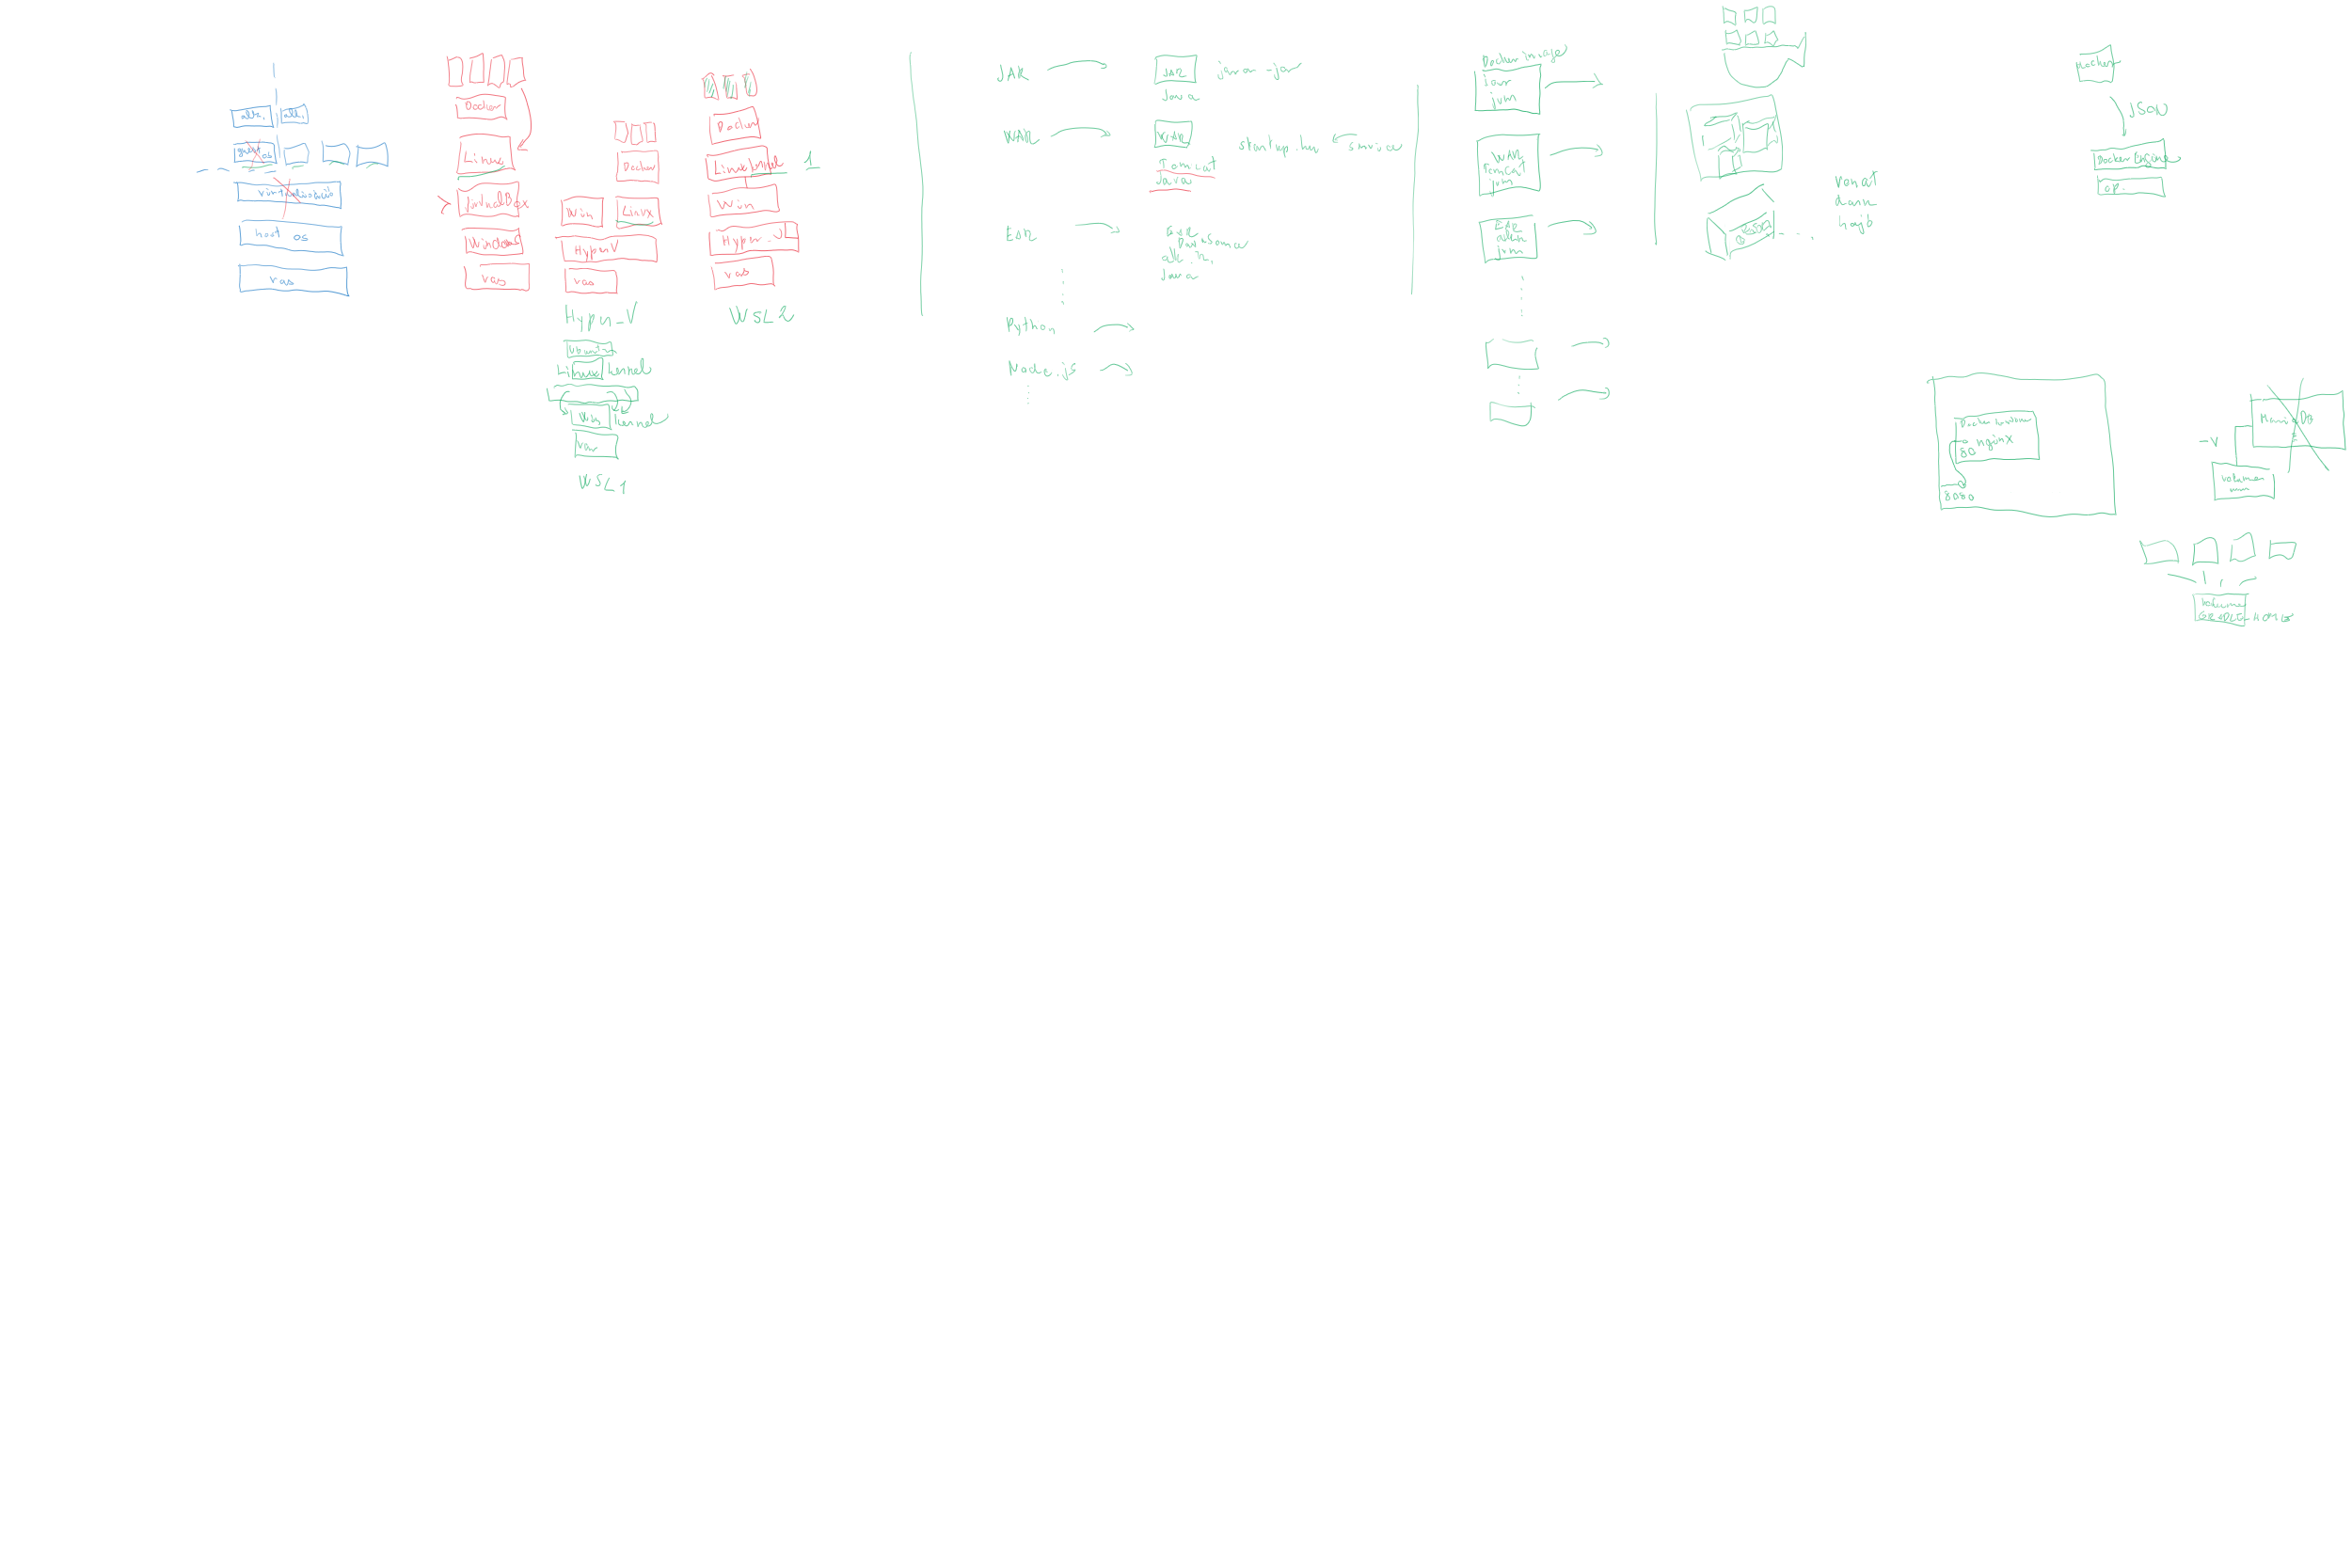 alk.
alk.
guest os
virtualizáció
host os
vas
Docker
Linux
VirtualBox
Windows
vas
Docker
Win
Linux
HyperV
vas
Hyper-V
Ubuntu
Linux kernel
Win kernel
vas
WSL1
Docker
Linux kernel
1
Win
Hyper-V
vas
WSL2
JAR
JAR
Java
java -jar
WAR
WAR
Tomcat
Java
startup.bat
service
EAR
EAR
DataSource
alk. sz.
Java
Python
Node.js
Docker image
jar
jvm
WAR
Tomcat
jvm
EAR
alk.sz.
jvm
vonat
daru
hajó
docker
JSON
Docker Engine
op.
Docker konténer
nginx
80
8080
MariaDB
-v
volume
volume
GRADLE_HOME